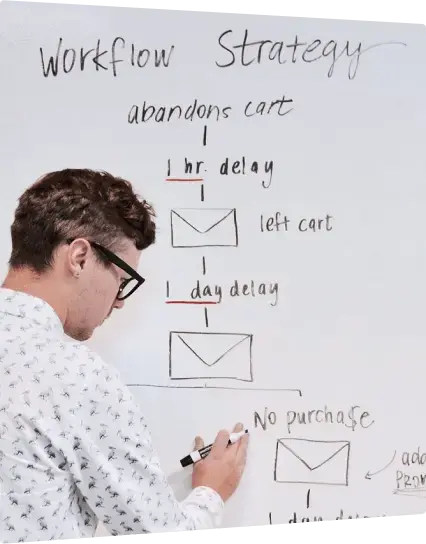 Workflow Strategy
abandons cart
1 hr. delay
left cart
1 day delay
No purchase
1 day